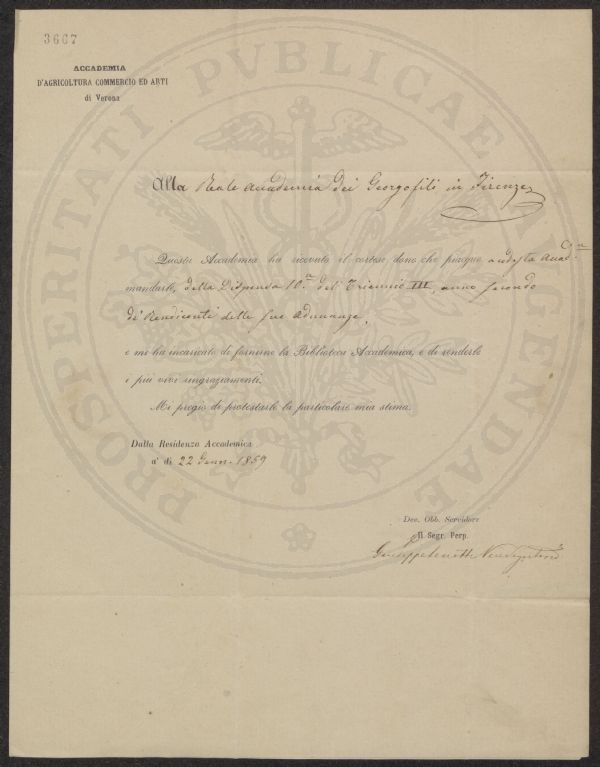 3667
ACCADEMIA
D'AGRICOLTURA COMMERCIO ED ARTI
di Verona
PROSPERITATI PUBLICAE AUGENDAE
Alla Reale Accademia dei Georgofili in Firenze
Questa Accademia ha ricevuto il cortese dono che piacque a cod.sta Accad.
mandarle, della Dispensa 10.a del Triennio III, anno secondo
di Rendiconti delle sue adunanze,
e mi ha incaricato di fornirne la Biblioteca Accademica, e di renderle
i più vivi ringraziamenti.
Mi pregio di protestarle la particolare mia stima.
Dalla Residenza Accademica
a' dì 22 Genn. 1859
Dev. Obb. Servidore
Il Segr. Perp.